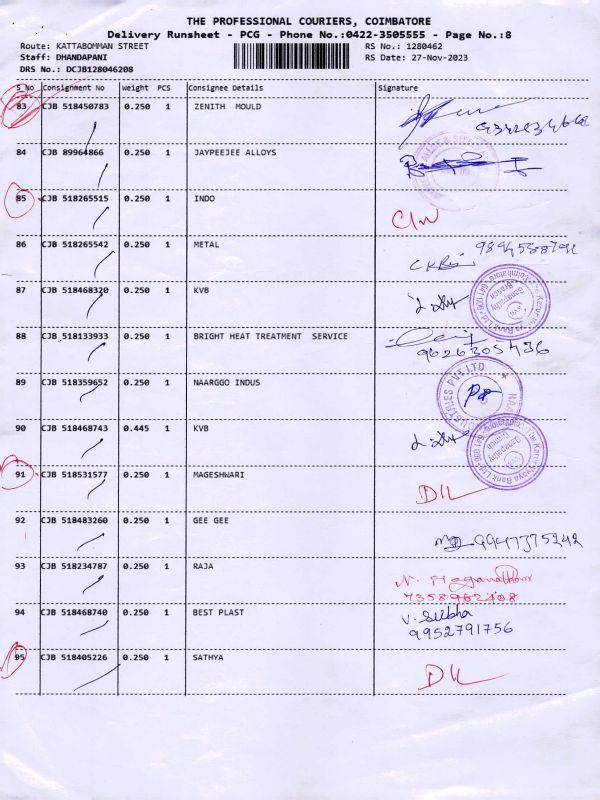 THE PROFESSIONAL COURIERS, COIMBATORE
Delivery Runsheet - PCG - Phone No.:0422-3505555 - Page No.:8
Route: KATTABOMMAN STREET RS No.: 1280462
Staff: DHANDAPANI RS Date: 27-Nov-2023
DRS No.: DCJB128046208
S_No Consignment No Weight PCS Consignee Details Signature
83 CJB 518450783 0.250 1 ZENITH MOULD
84 CJB 89964866 0.250 1 JAYPEEJEE ALLOYS
85 CJB 518265515 0.250 1 INDO
86 CJB 518265542 0.250 1 METAL
87 CJB 518468320 0.250 1 KVB
88 CJB 518133933 0.250 1 BRIGHT HEAT TREATMENT SERVICE
9626305436
89 CJB 518359652 0.250 1 NAARGGO INDUS
90 CJB 518468743 0.445 1 KVB
91 CJB 518531577 0.250 1 MAGESHWARI DIL
92 CJB 518483260 0.250 1 GEE GEE 9947375242
93 CJB 518234787 0.250 1 RAJA
7358962408
94 CJB 518468740 0.250 1 BEST PLAST V. Subha
9952791756
95 CJB 518405226 0.250 1 SATHYA DIL